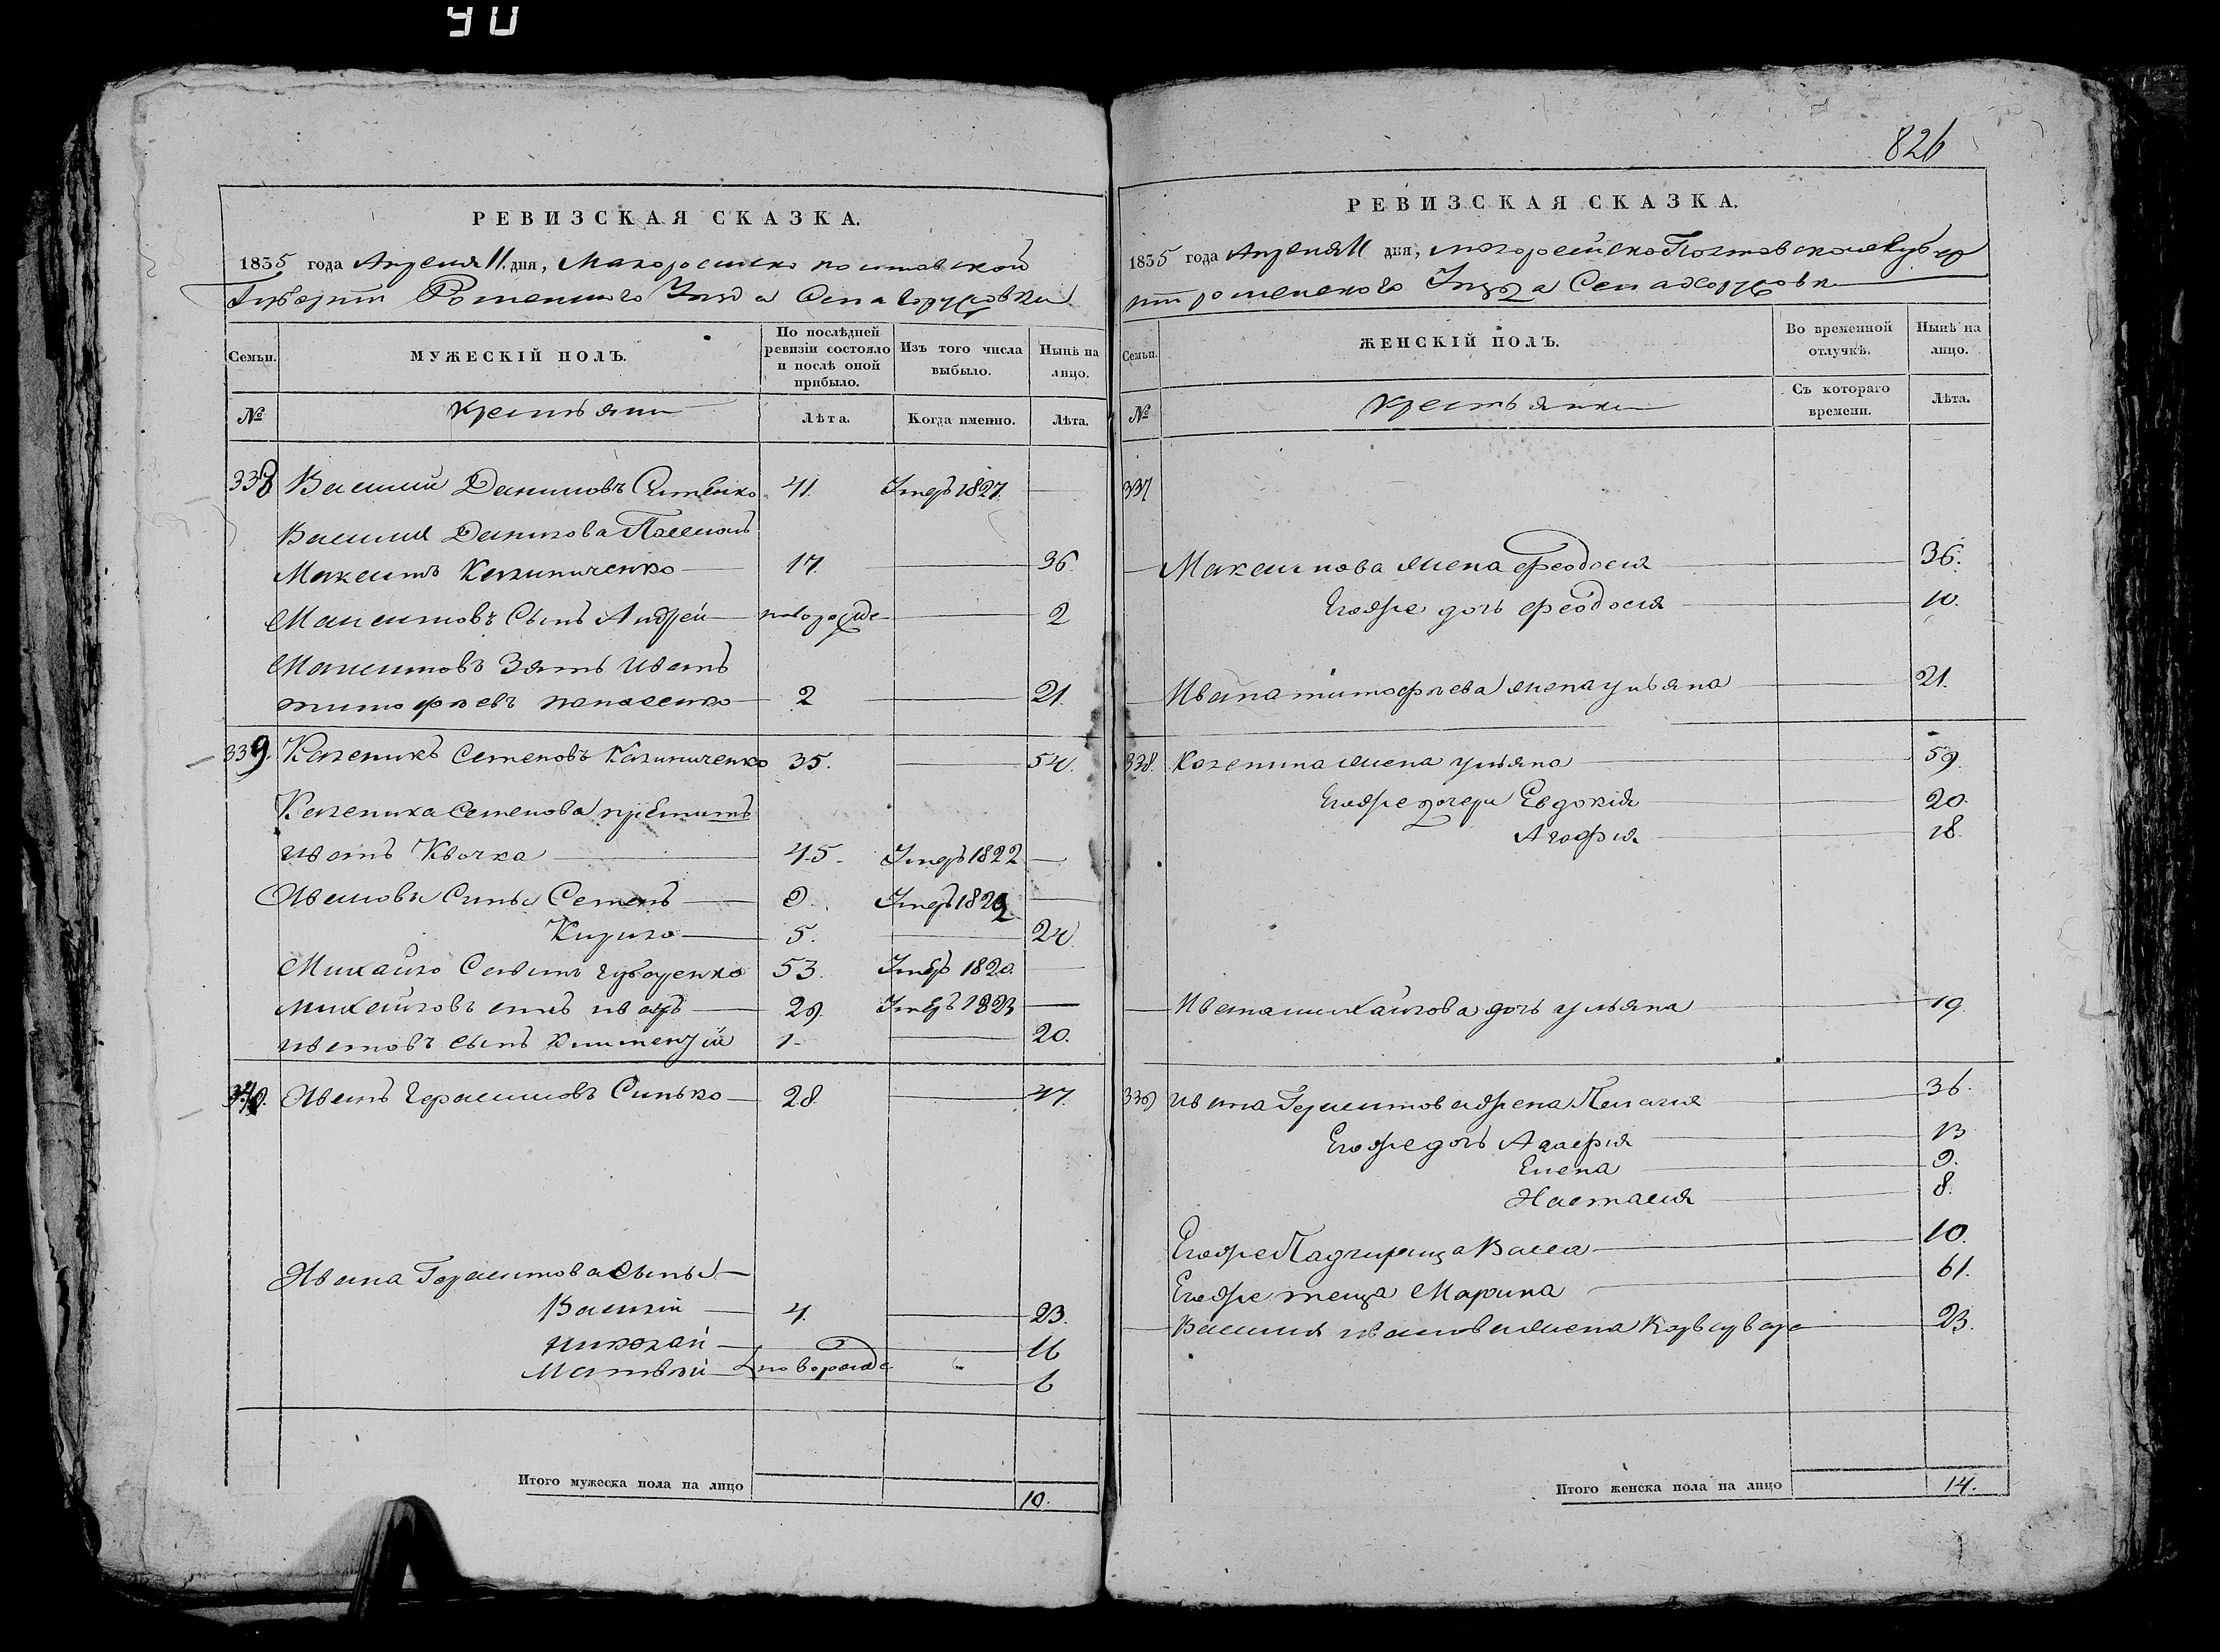 90
826
РЕВИЗСКАЯ СКАЗКА.
1835 года Апреля 11 дня, Малоросииско полтавской
Губернии Роменского Уезда Села
Семьи.
МУЖЕСКІЙ ПОЛЪ.
По послѣдней ревизіи состояло и послѣ оной прибыло.
Изъ того числа выбыло.
Нынѣ на лицо.
№
Крестьяни
Лѣта.
Когда именно.
Лѣта.
338 Василий Даниловъ 41. Умеръ 1827.
Василия Данилова
Максимъ Калиниченко 17. 36.
Максимовъ Сынъ Андрей новорожде 2
Максимовъ Зять Иванъ
тимофѣевъ 2 21.
339. Каленикъ Семеновъ Калиниченко 35. 54.
Каленика Семенова
Иванъ Квочка 45. Умеръ 1822
Ивановы Сины Семенъ 9. Умеръ 1822
Кирило 5. 24.
Михайло 53. Умеръ 1820.
Михайловъ синъ иванъ 29. Умеръ 1823
ивановъ сынъ 1. 20.
340. Иванъ Герасимовъ Синько 28. 47.
Ивана Герасимова Сыны
Василій 4. 23.
Николай 11
Матвѣй новорожде 6
Итого мужеска пола на лицо 10.
РЕВИЗСКАЯ СКАЗКА.
1835 года Апреля 11 дня, малоросийско Полтавской Губер
нии роменского Уезда Села
Семьи.
ЖЕНСКІЙ ПОЛЪ.
Во временной отлучкѣ.
Нынѣ на лицо.
№
Крестьянки
Съ котораго времени.
Лѣта.
337
Максимова жена феодосия 36.
Егоже дочь феодосия 10.
Ивана тимофѣева жена ульяна 21.
338. Каленика жена ульяна 59.
Егоже дочери Евдокія 20.
Агафия 18.
Ивана михайлова дочь ульяна 19.
339 ивана Герасимова жена Пелагия 36.
Егоже дочь 13
Елена 9.
Настасия 8.
Егоже Падчирица Васса 10.
Егоже теща Марина 61.
Василия иванова жена 23.
Итого женска пола на лицо 14.